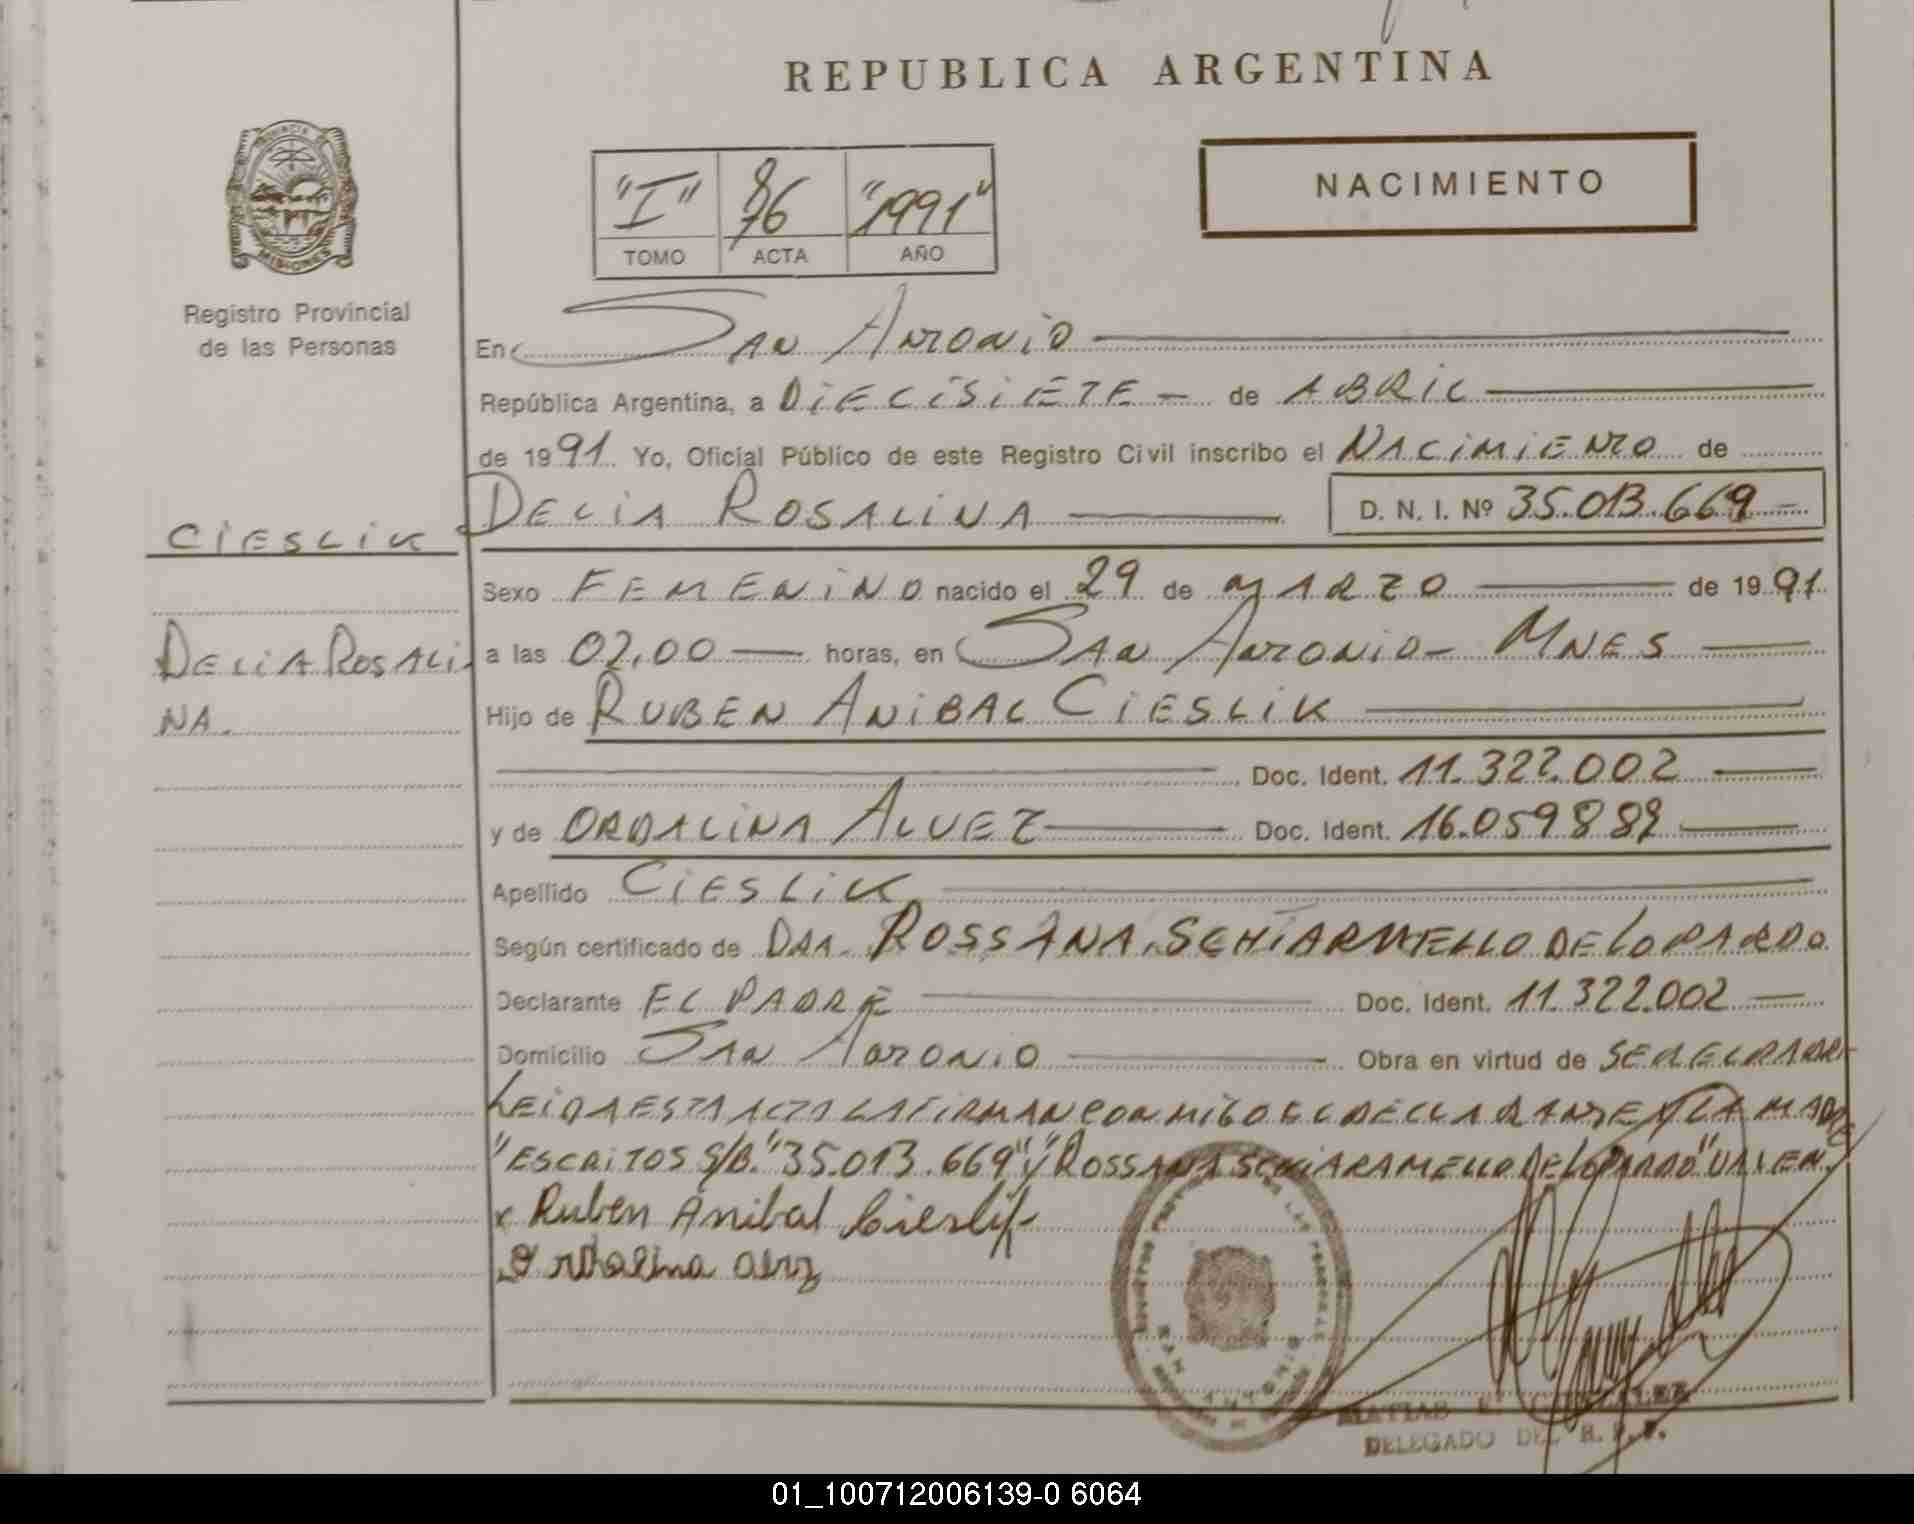 REPUBLICA ARGENTINA
PROVINCIA
MISIONES
Registro Provincial
de las Personas
"I" 76 "1991"
TOMO ACTA AÑO
NACIMIENTO
En SAN ANTONIO
República Argentina, a DIECISIETE - de ABRIL
de 1991 Yo, Oficial Público de este Registro Civil inscribo el NACIMIENTO de
CIESLIK
DELIA ROSALINA D. N. I. Nº 35.013.669 -
Sexo FEMENINO nacido el 29 de MARZO de 1991
DELIA ROSALI
NA.
a las 02,00 horas, en SAN ANTONIO - MNES
Hijo de RUBEN ANIBAL CIESLIK
Doc. Ident. 11.322.002
y de ORDALINA ALVEZ Doc. Ident. 16.059889
Apellido CIESLIK
Según certificado de DRA. ROSSANA SCHIARMELLO DE LOPARDO
Declarante EL PADRE Doc. Ident. 11.322.002
Domicilio SAN ANTONIO Obra en virtud de SER EL PADRE
LEIDA ESTA ACTA LA FIRMAN CONMIGO EL DECLARANTE Y LA MADRE
"ESCRITOS S/B." "35.013.669" y "ROSSANA SCHIARAMELLO DE LOPARDO" VALEN.
x Ruben Anibal Cieslik
Ordalina Alvez
SAN ANTONIO
MATIAS E.
DELEGADO DEL R. P. P.
01_100712006139-0 6064